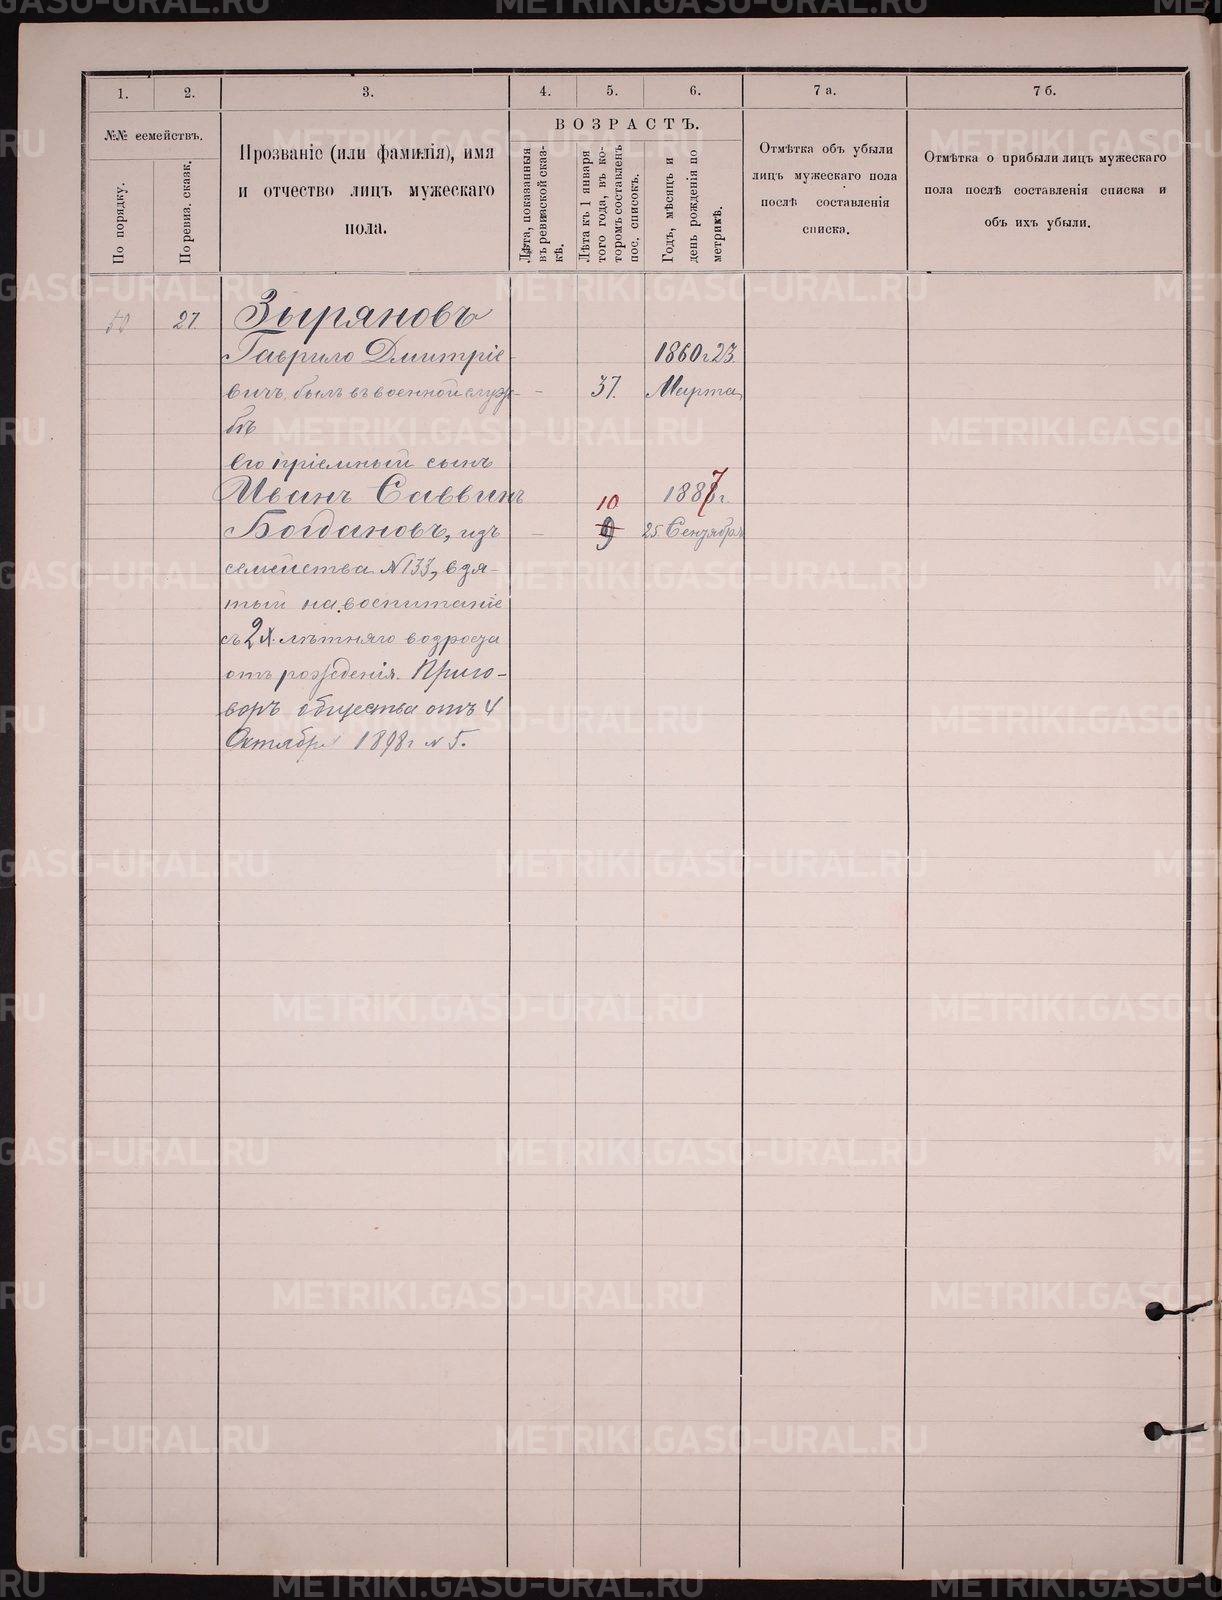 1. 2. 3. 4. 5. 6. 7 а. 7 б.
№№ семействъ.
По порядку.
По ревиз. сказк.
Прозваніе (или фамилія), имя
и отчество лицъ мужескаго
пола.
ВОЗРАСТЪ.
Лѣта, показанныя
въ ревизской сказ-
кѣ.
Лѣта къ 1 января
того года, въ ко-
торомъ составленъ
пос. списокъ.
Годъ, мѣсяцъ и
день рожденія по
метрикѣ.
Отмѣтка объ убыли
лицъ мужескаго пола
послѣ составленія
списка.
Отмѣтка о прибыли лицъ мужескаго
пола послѣ составленія списка и
объ ихъ убыли.
50 27. Зыряновъ
Гаврило Дмитріе- 1860 г. 23
вичъ, былъ въ военной служ- - 37. Марта
бѣ
Его пріемный сынъ
Иванъ Саввинъ 10 1887 г.
Богдановъ, изъ - 9 25 Сентября
семейства №133, взя-
тый на воспитаніе
съ 2х лѣтняго возроста
отъ рожденія. Приго-
воръ общества отъ 4
Октября 1898 г № 5.
METRIKI.GASO-URAL.RU